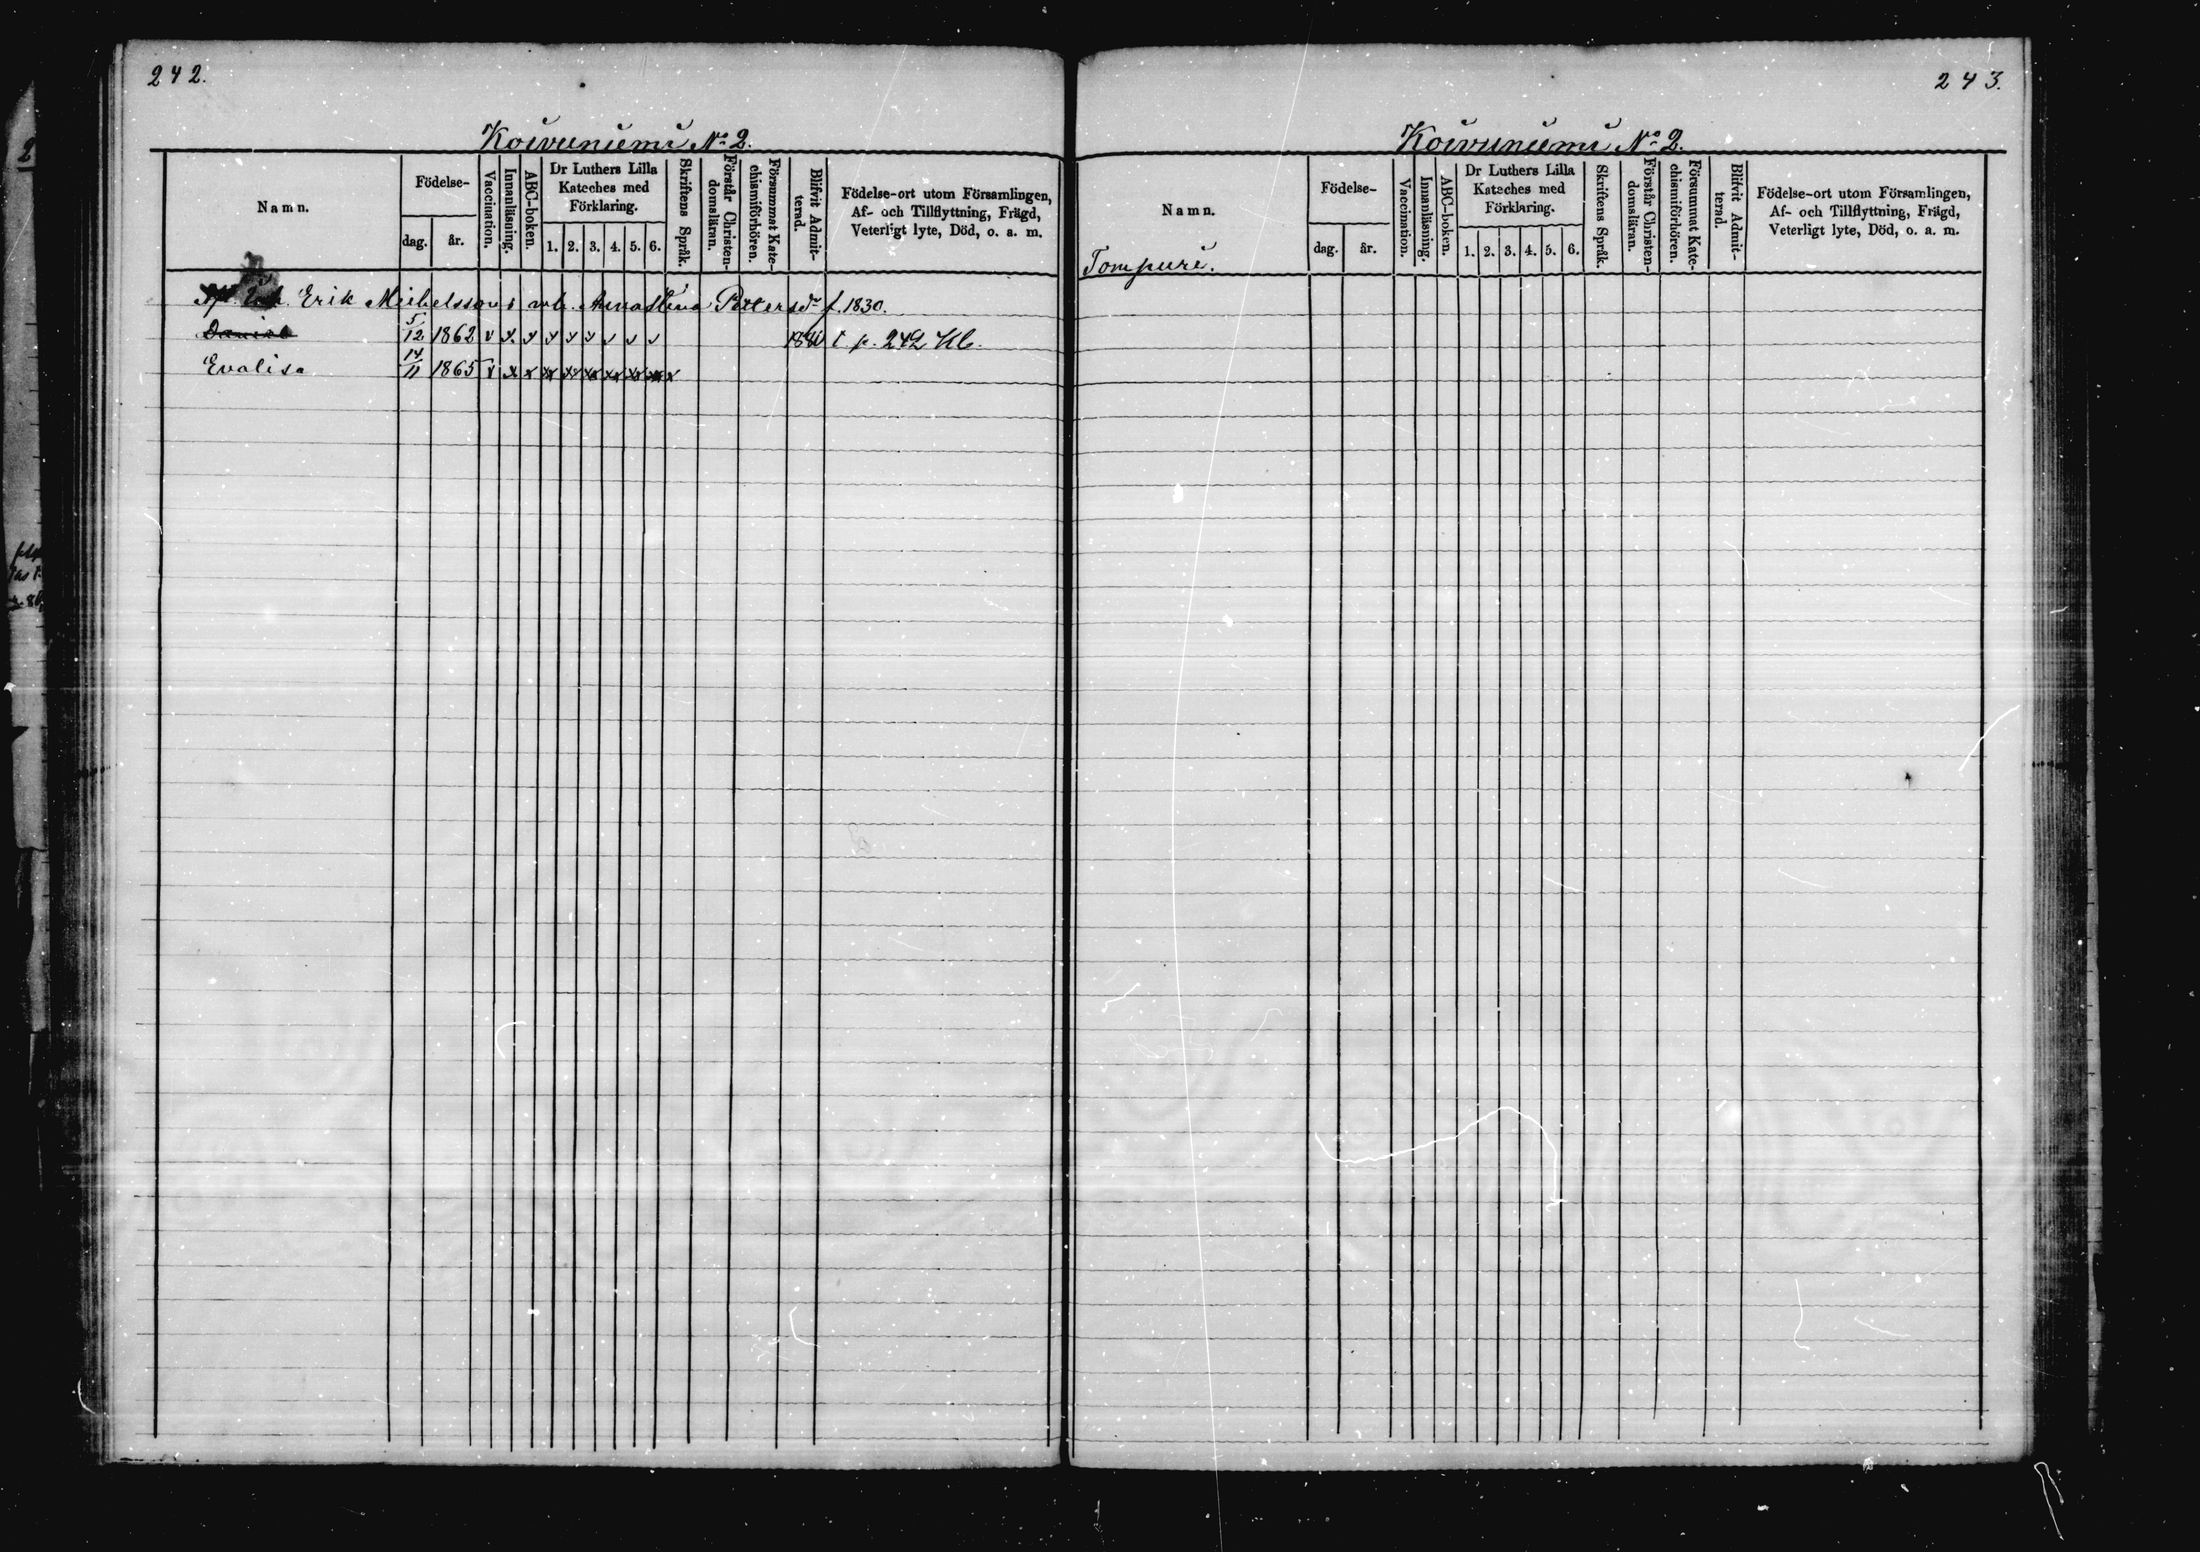 242.
Koivuniemi No 2.
Namn.
Födelse-
dag. år.
Vaccination.
Innanläsning.
ABC-boken.
Dr Luthers Lilla
Kateches med
Förklaring.
1. 2. 3. 4. 5. 6.
Skriftens Språk.
Förstår Christen-
domsläran.
Försummat Kate-
chismiförhören.
Blifvit Admit-
terad.
Födelse-ort utom Församlingen,
Af- och Tillflyttning, Frägd,
Veterligt lyte, Död, o. a. m.
Erik Michelssons Anna Pettersdr f. 1830.
Daniel 5/12 1862 v v v v v v v v v 1880 t p. 242 Hb.
Evalisa 14/11 1865 v x x x x x x x x x
243.
Koivuniemi No 2.
Namn.
Tompuri.
Födelse-
dag. år.
Vaccination.
Innanläsning.
ABC-boken.
Dr Luthers Lilla
Kateches med
Förklaring.
1. 2. 3. 4. 5. 6.
Skriftens Språk.
Förstår Christen-
domsläran.
Försummat Kate-
chismiförhören.
Blifvit Admit-
terad.
Födelse-ort utom Församlingen,
Af- och Tillflyttning, Frägd,
Veterligt lyte, Död, o. a. m.